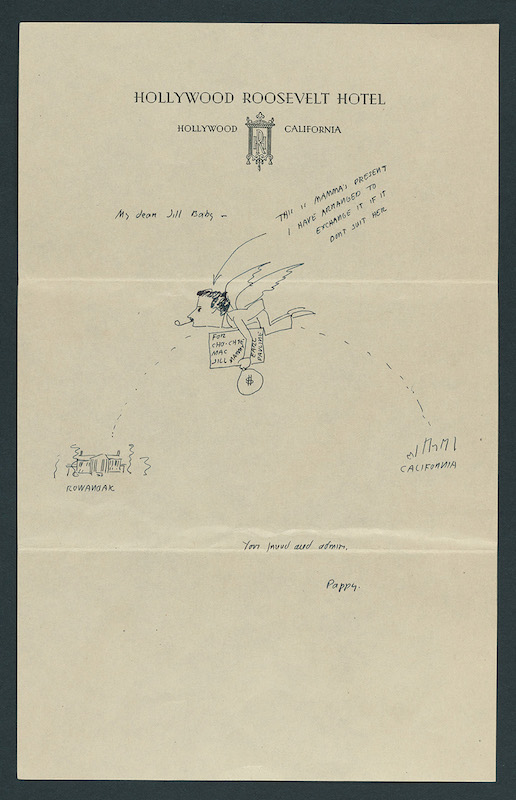 HOLLYWOOD ROOSEVELT HOTEL
HOLLYWOOD CALIFORNIA
My dear Jill Baby —
THIS IS MAMMA'S PRESENT
I HAVE ARRANGED TO
EXCHANGE IT IF IT
DONT SUIT HER
FOR
CHO-CHO
MAC
JILL MAMMY
EARL
PAULINE
$
ROWANOAK
CALIFORNIA
Your friend and admirer,
Pappy.